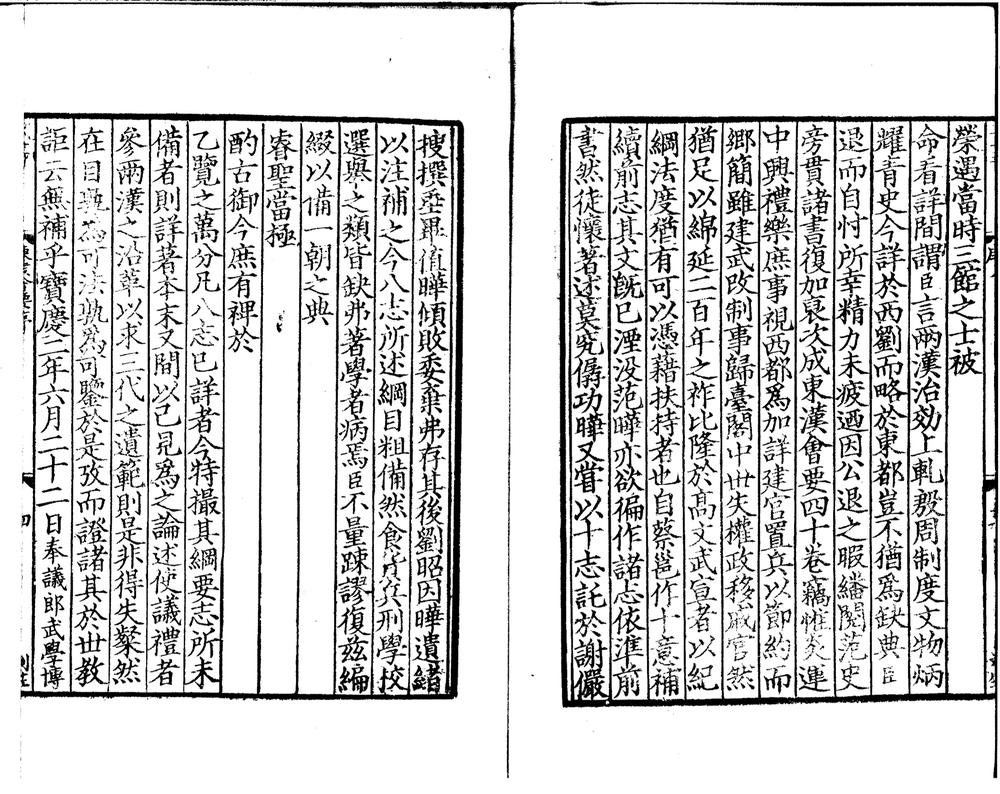 榮遇當時三館之士被
命看詳間謂臣言兩漢治効上軋殷周制度文物炳
耀青史今詳於西劉而略於東都豈不猶為缺典臣
退而自忖所幸精力未疲迺因公退之暇繙閱范史
旁貫諸書復加裒次成東漢會要四十卷竊惟炎運
中興禮樂庶事視西都為加詳建官置兵以節約而
鄉簡雖建武改制事歸臺閣中世失權政移戚宦然
猶足以綿延二百年之祚比隆於高文武宣者以紀
綱法度猶有可以憑藉扶持者也自蔡邕作十意補
續前志其文既已湮没范曄亦欲徧作諸志依準前
書然徒懷著述莫究僝功曄又甞以十志託於謝儼
搜撰垂畢偝曄傾敗委棄弗存其後劉昭因曄遺緒
以注補之今八志所述綱目粗備然食貨兵刑學校
選舉之類皆缺弗著學者病焉臣不量踈謬復茲編
綴以備一朝之典
睿聖當極
酌古御今庶有禆於
乙覽之萬分凡八志已詳者今特撮其綱要志所未
備者則詳著本末又間以己見為之論述使議禮者
參兩漢之沿革以求三代之遺範則是非得失粲然
在目孰為可法孰為可鑒於是攷而證諸其於世教
詎云無補乎寶慶二年六月二十二日奉議郎武學博
四